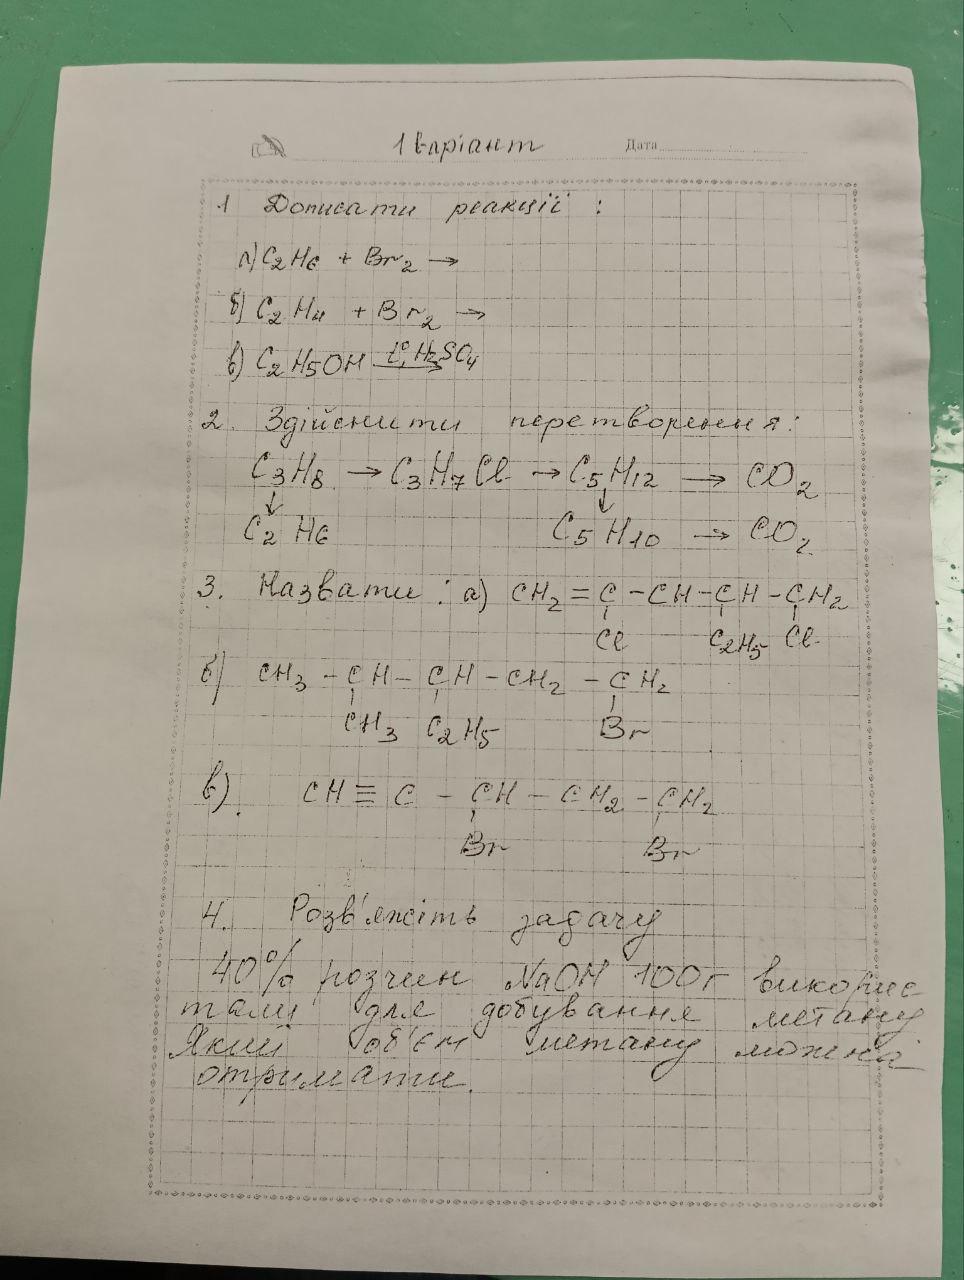 1 варіант Дата
1 Дописати реакції :
а) C2H6 + Br2 →
б) C2H4 + Br2 →
в) C2H5OH t°, H2SO4 →
2. Здійснити перетворення:
C3H8 → C3H7Cl → C5H12 → CO2
↓ ↓
C2H6 C5H10 → CO2
3. Назвати : а) CH2 = C – CH – CH – CH2
Cl C2H5 Cl
б) CH3 – CH – CH – CH2 – CH2
CH3 C2H5 Br
в) CH ≡ C – CH – CH2 – CH2
Br Br
4. Розв'яжіть задачу
40% розчин NaOH 100г використ
тали для добування метану
Який об'єм метану можна
отримати.